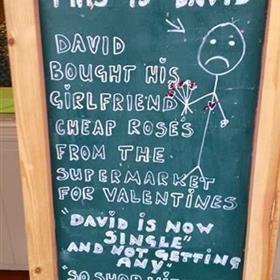 THIS IS DAVID
DAVID
BOUGHT HIS
GIRLFRIEND
CHEAP ROSES
FROM THE
SUPERMARKET
FOR VALENTINES
"DAVID IS NOW
SINGLE"
AND NOT GETTING
ANY"
"SO SHOP